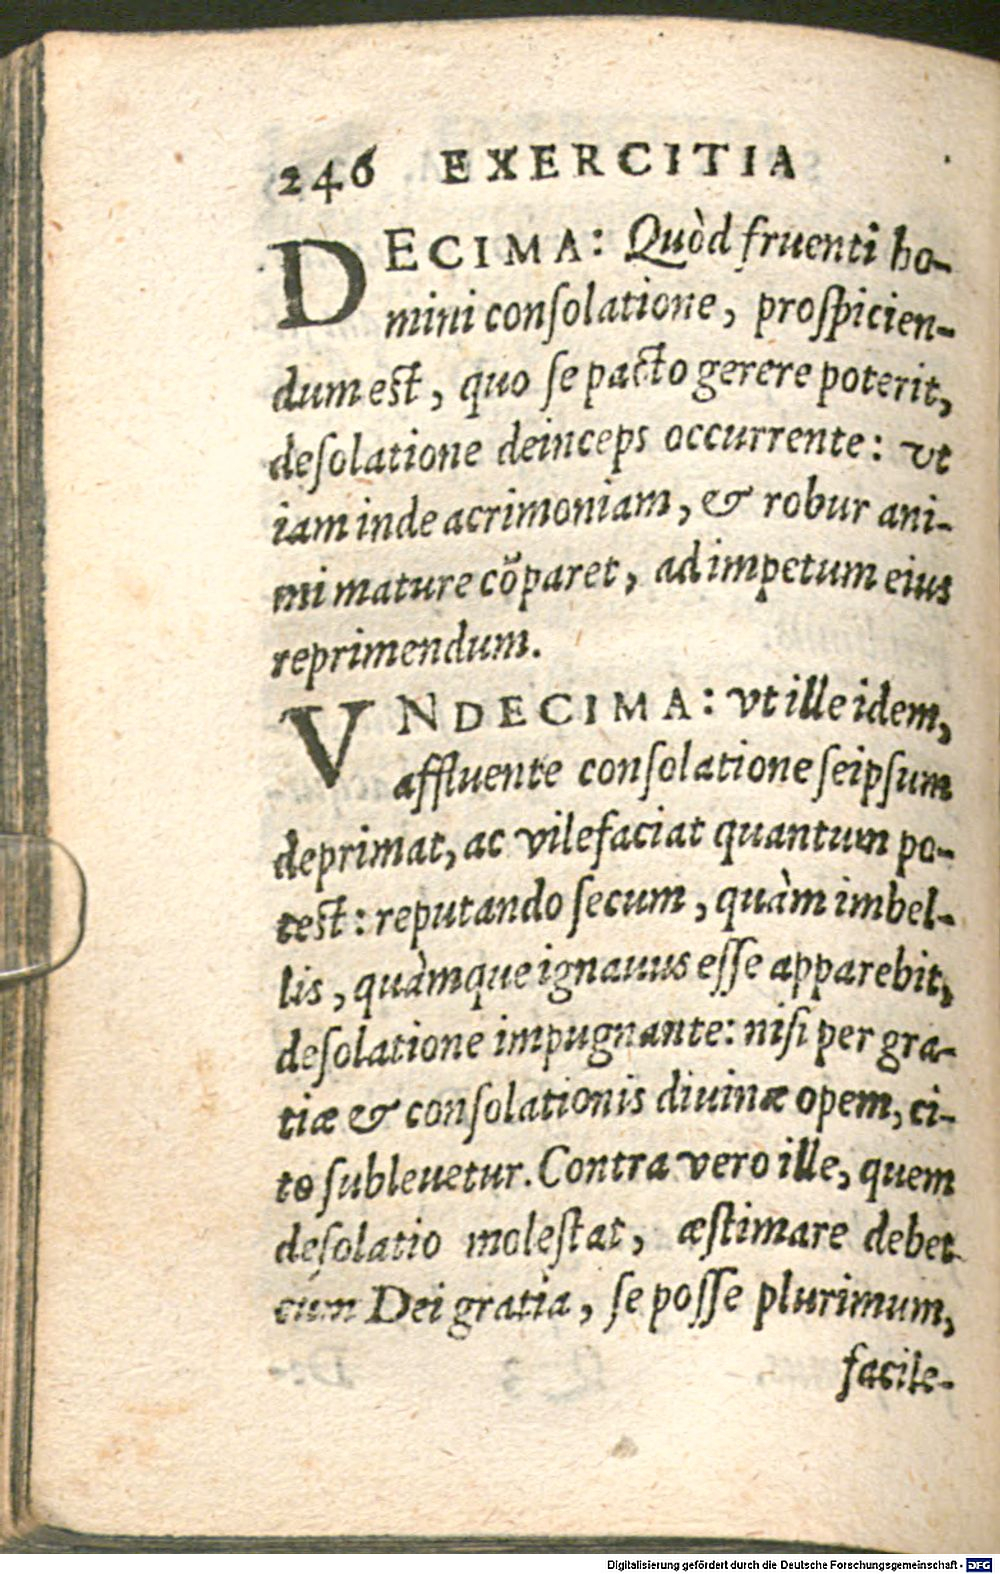 246 EXERCITIA
DECIMA: Quòd fruenti ho-
mini conſolatione, proſpicien-
dum est, quo ſe pacto gerere poterit,
deſolatione deinceps occurrente: vt
iam inde acrimoniam, & robur ani-
mi mature cõparet, ad impetum eius
reprimendum.
VNDECIMA: vt ille idem,
affluente conſolatione ſeipſum
deprimat, ac vilefaciat quantum po-
test: reputando ſecum, quàm imbel-
lis, quàmque ignauus eſſe apparebit,
deſolatione impugnante: niſi per gra-
tiæ & conſolationis diuinæ opem, ci-
to ſubleuetur. Contra vero ille, quem
deſolatio moleſtat, æſtimare debet
cum Dei gratia, ſe poſſe plurimum,
facile-
Digitalisierung gefördert durch die Deutsche Forschungsgemeinschaft - DFG